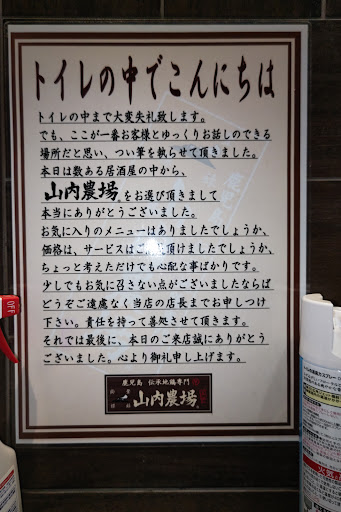 トイレの中でこんにちは
トイレの中まで大変失礼致します。
でも、ここが一番お客様とゆっくりお話しのできる
場所だと思い、つい筆を執らせて頂きました。
本日は数ある居酒屋の中から、
山内農場をお選び頂きまして
本当にありがとうございました。
お気に入りのメニューはありましたでしょうか、
価格は、サービスはご満足頂けましたでしょうか、
ちょっと考えただけでも心配な事ばかりです。
少しでもお気に召さない点がございましたならば
どうぞご遠慮なく当店の店長までお申しつけ
下さい。責任を持って善処させて頂きます。
それでは最後に、本日のご来店誠にありがとう
ございました。心より御礼申し上げます。
鹿児島 伝承地鶏専門
山内農場
OFF
火気